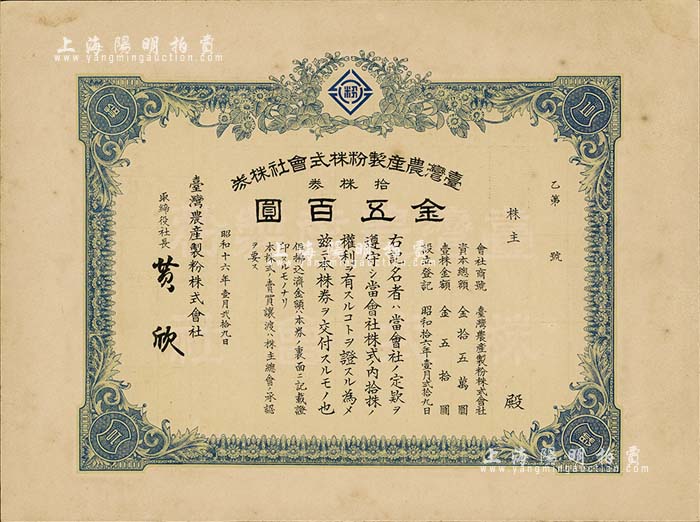 上海陽明拍賣
www.yangmingauction.com
粉
臺灣農產製粉株式會社株券
拾株券
金五百圓
乙第　號
株主　殿
會社商號　臺灣農產製粉株式會社
資本總額　金拾五萬圓
壹株金額　金五拾圓
設立登記　昭和拾六年壹月貳拾九日
右記名者ハ當會社ノ定款ヲ
遵守シ當會社株式ノ内拾株ノ
權利ヲ有スルコトヲ證スル為メ
茲ニ本株券ヲ交付スルモノ也
但拂込濟金額ハ本券ノ裏面ニ記載證
印スルモノナリ
本株式ノ賣買讓渡ハ株主總會ノ承認
ヲ要ス
昭和十六年壹月貳拾九日
臺灣農產製粉株式會社
取締役社長　黄欣
上海陽明拍賣
www.yangmingauction.com